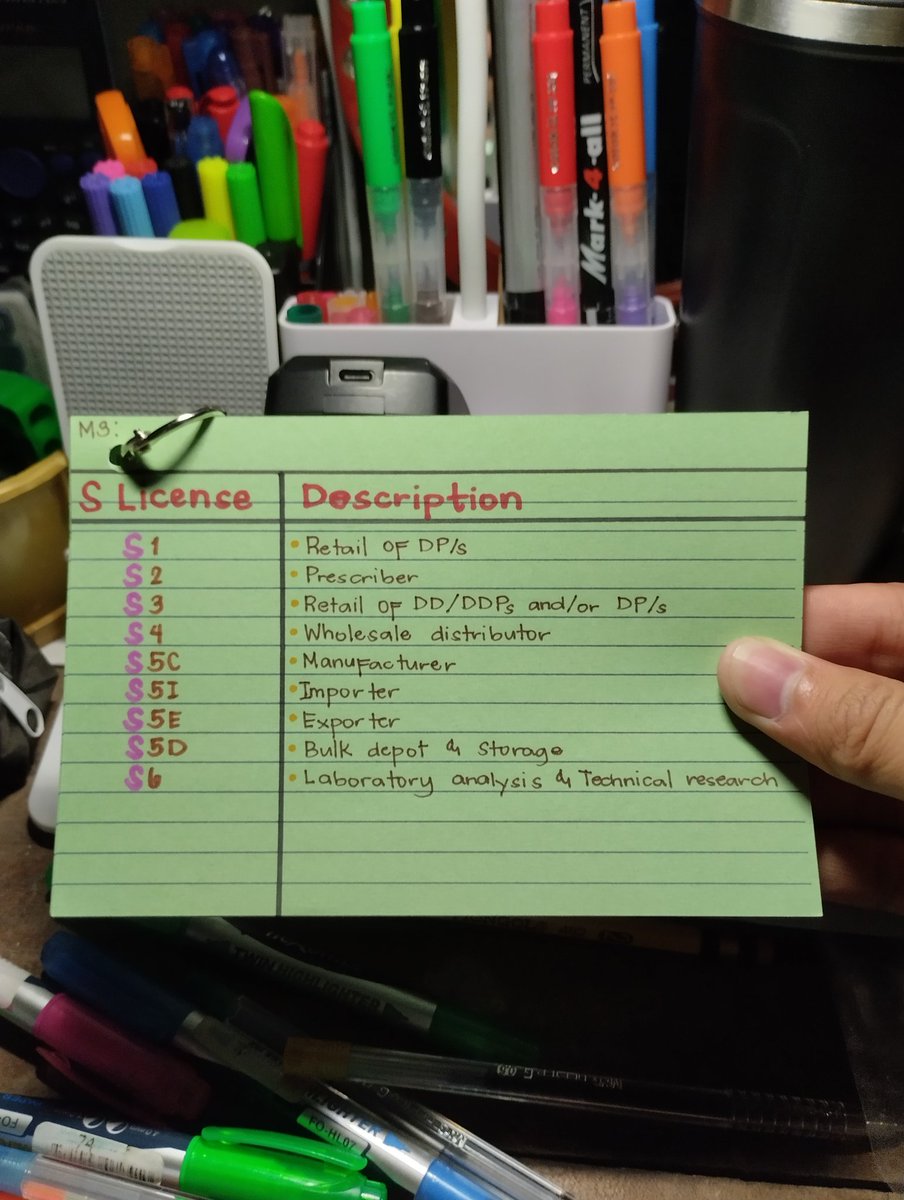 PERMANENT
Mark-4-all
M3:
S License Description
S1 • Retail of DP/s
S2 • Prescriber
S3 • Retail of DD/DDPs and/or DP/s
S4 • Wholesale distributor
S5C • Manufacturer
S5I • Importer
S5E • Exporter
S5D • Bulk depot & Storage
S6 • Laboratory analysis & Technical research
TWIN HIGHLIGHTER
FO-HL07